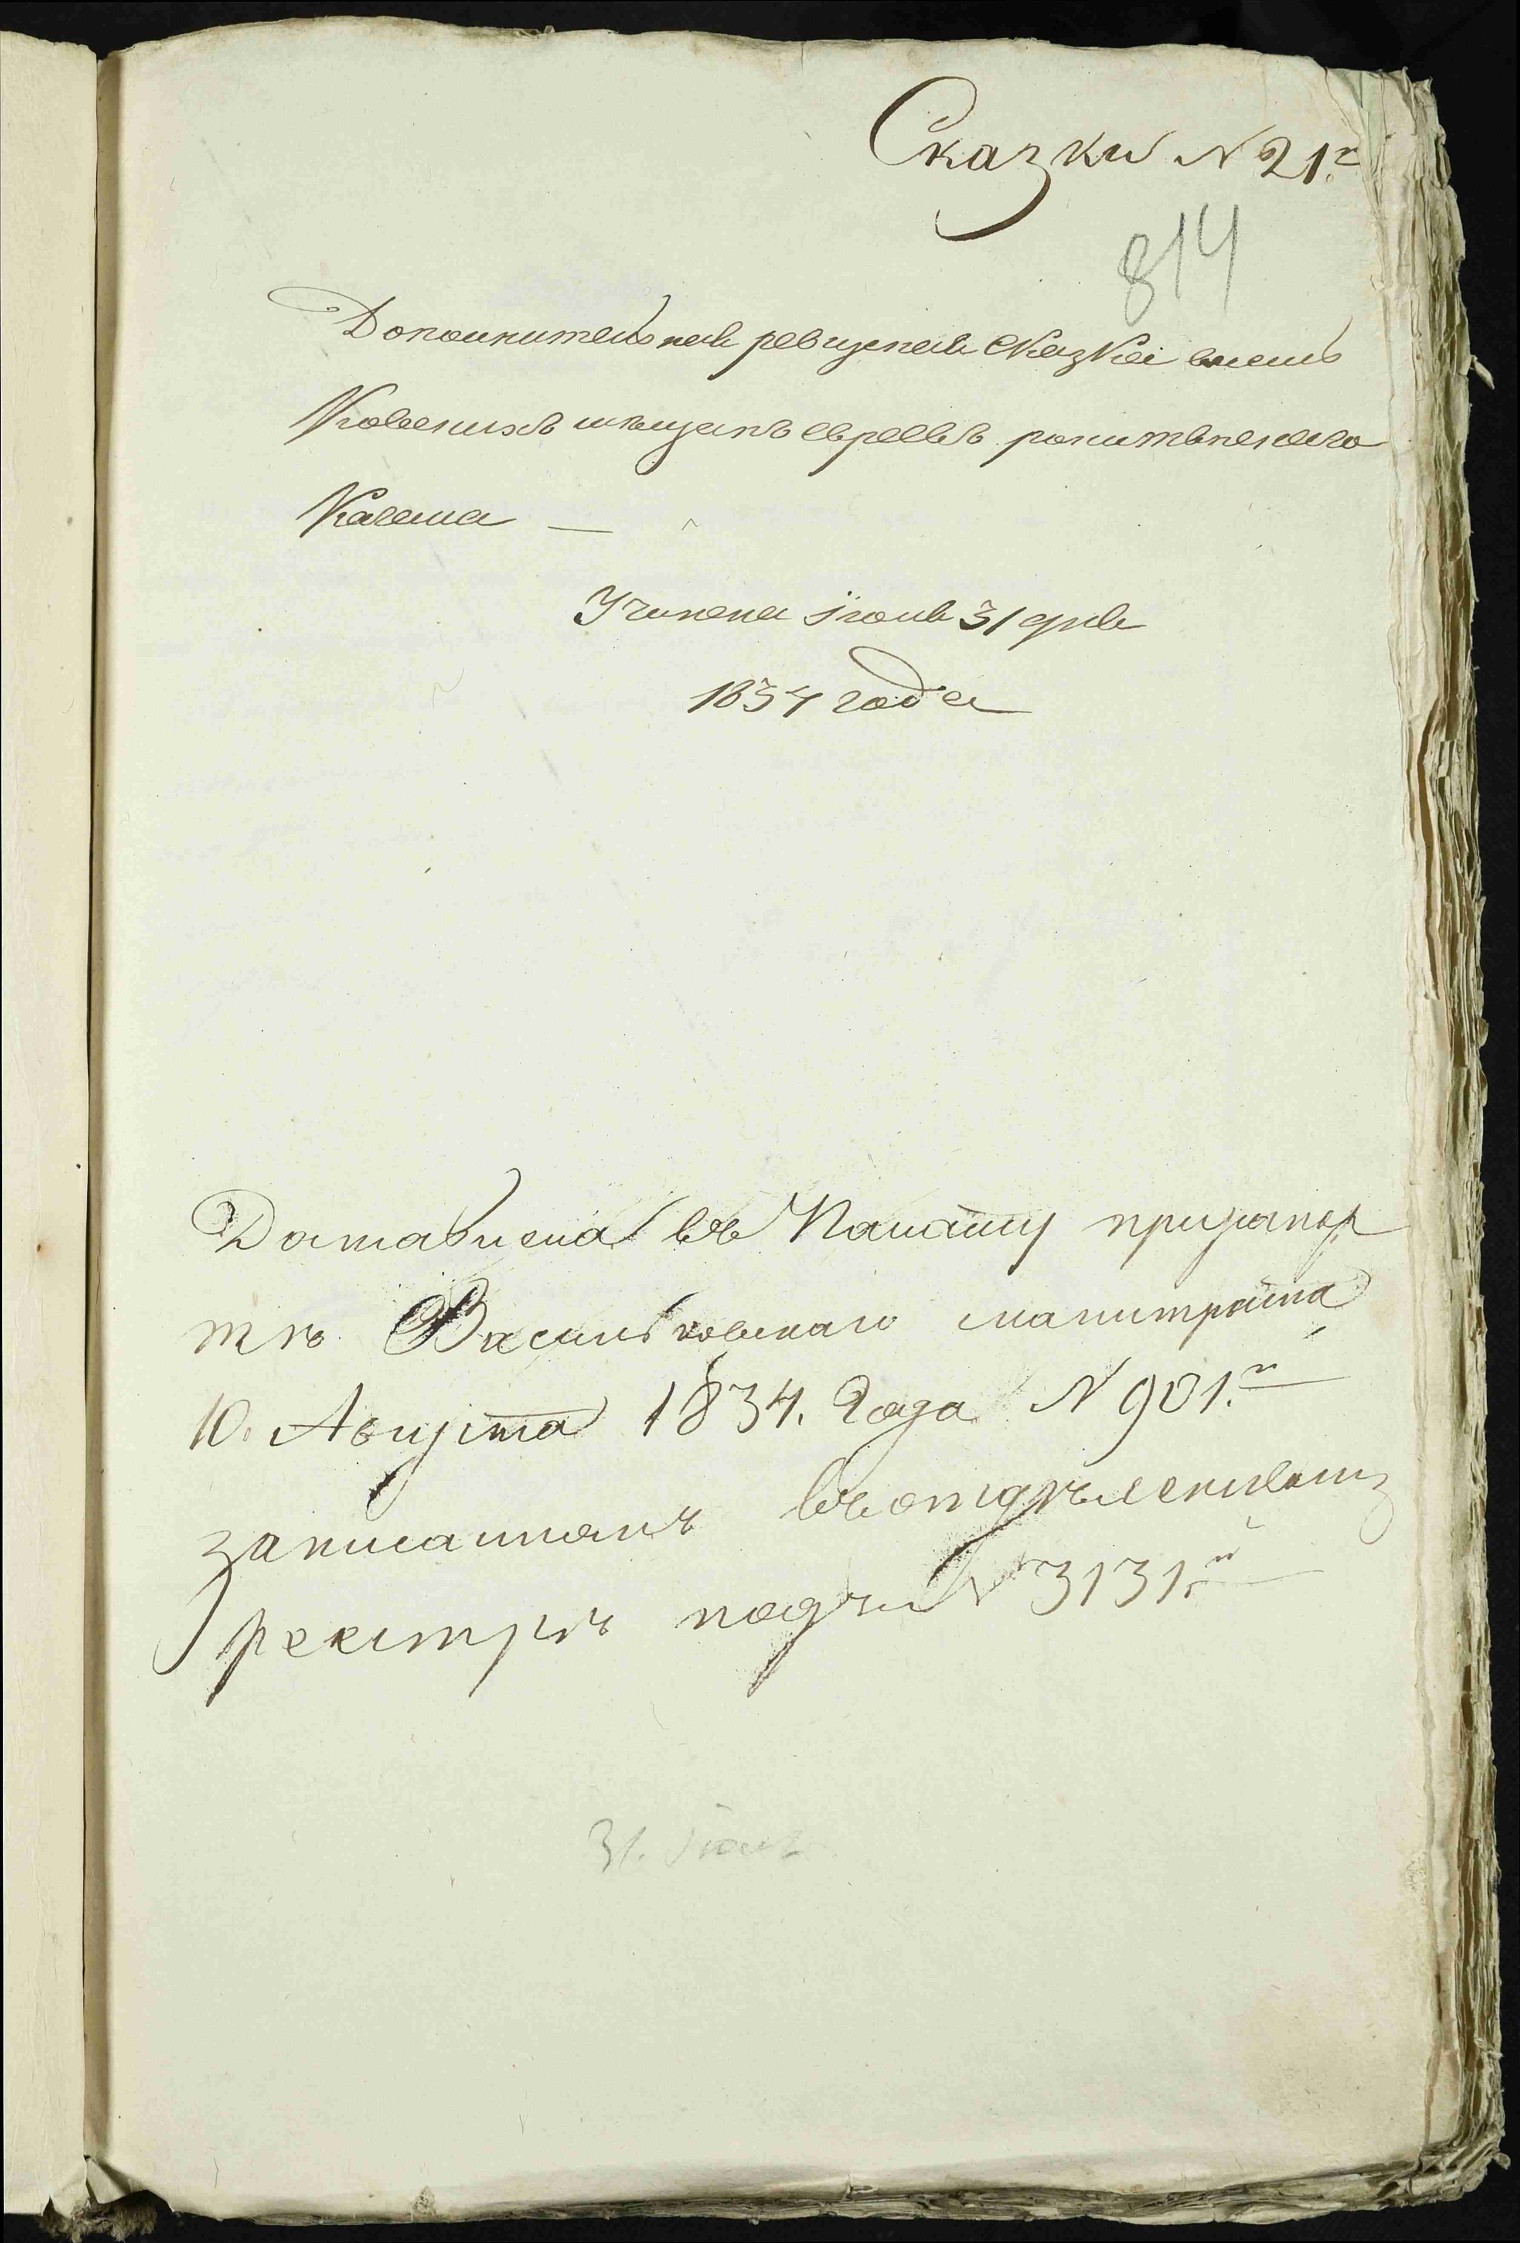 Сказки № 21й
814
Дополнительная ревизская сказка Василь
ковскихъ мещанъ евреевъ рокитнянскаго
Кагала —
Учинена Іюля 31 дня
1834 года
Доставлена въ Палату прирапор
тѣ Васильковскаго магистрата
10. Августа 1834. Года № 901.й
записаннамъ въ отдѣленскомъ
реестрѣ под № 3131.й
31. Июля